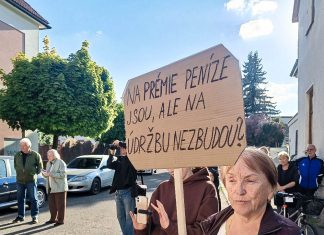 NA PRÉMIE PENÍZE
JSOU, ALE NA
ÚDRŽBU NEZBUDOU?